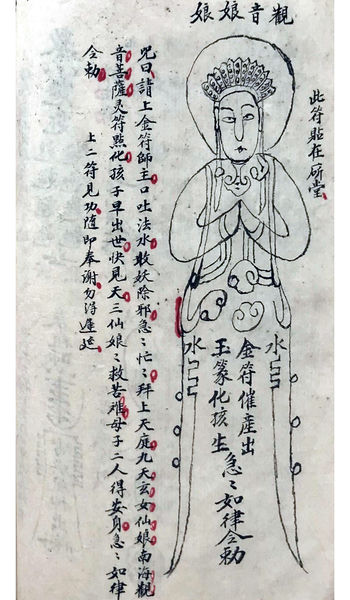 觀音娘娘
此符貼在所堂
水
金符催產出
王篆化孩生
急々如律令勅
水
咒曰請上金符師主口吐法水敢妖除邪急々忙々拜上天庭九天玄女仙娘南海觀
音菩薩灵符點化孩子早出世快見天三仙娘々救苦难母子二人得安身急々如律
令勅
上二符見功隨即奉謝勿得遲延